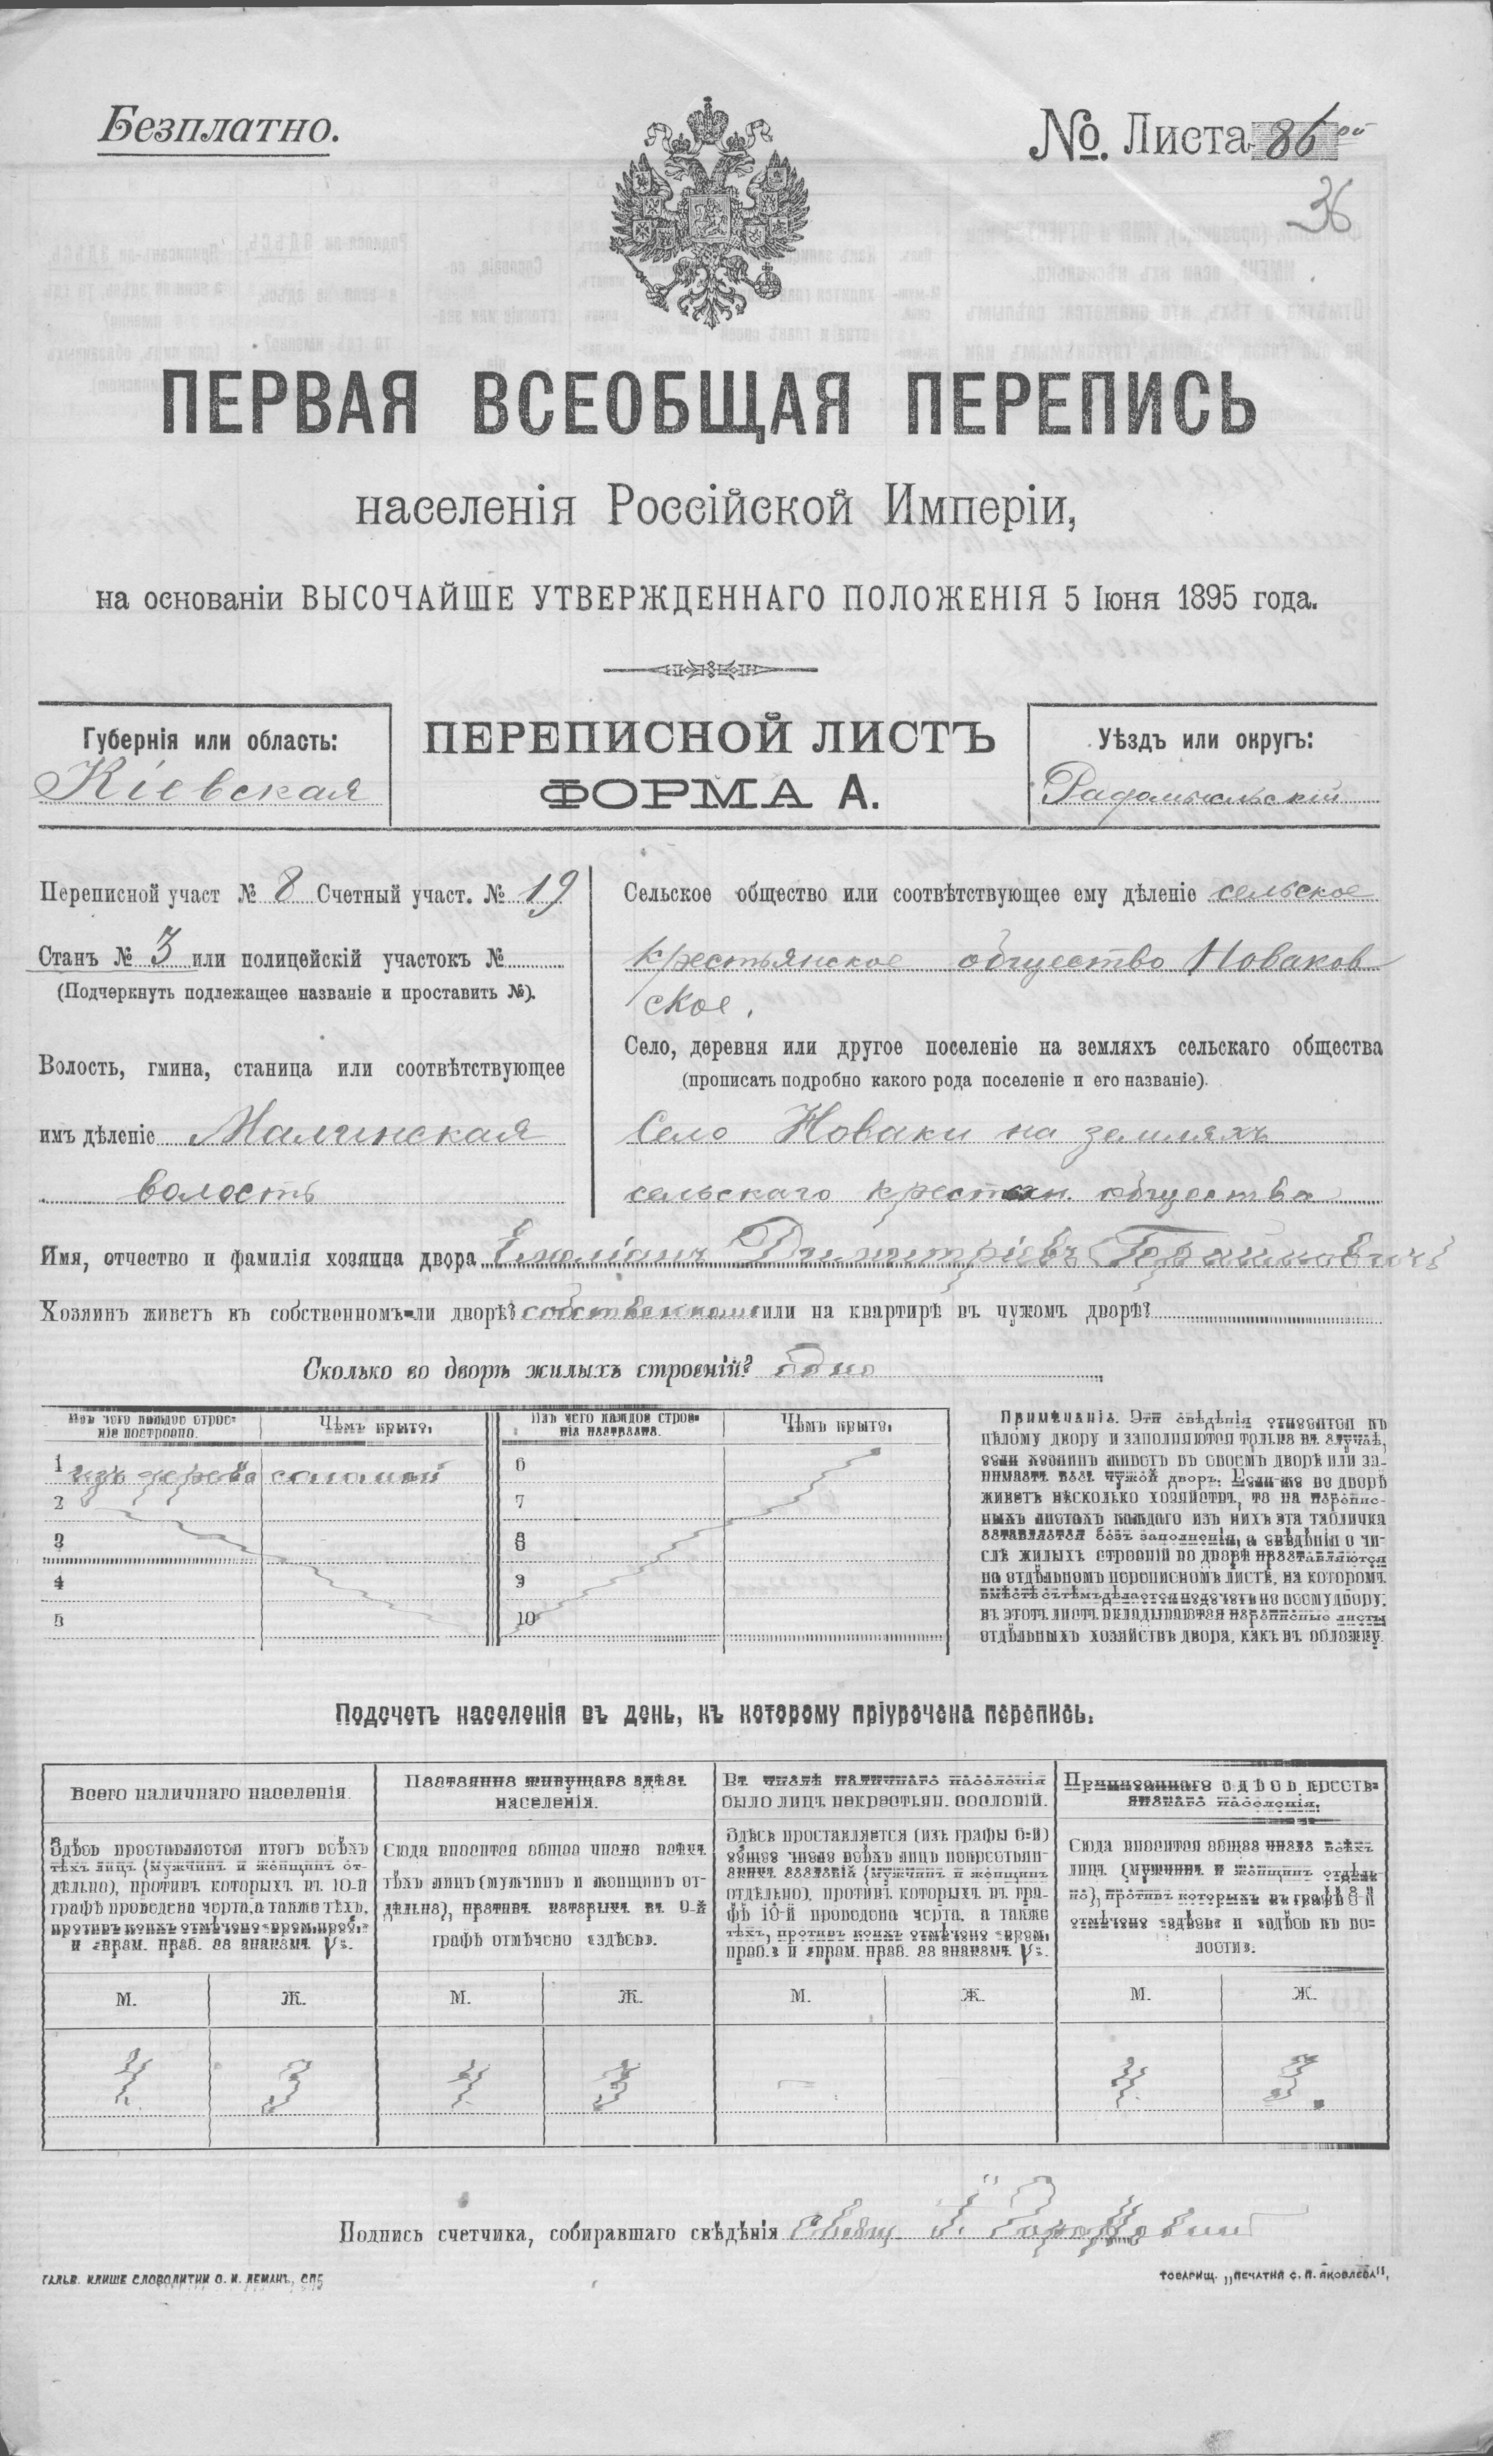 Безплатно.
№. Листа 86 ой
36
ПЕРВАЯ ВСЕОБЩАЯ ПЕРЕПИСЬ
населенія Россійской Имперіи,
на основаніи ВЫСОЧАЙШЕ УТВЕРЖДЕННАГО ПОЛОЖЕНІЯ 5 Іюня 1895 года.
Губернія или область:
Кіевская
ПЕРЕПИСНОЙ ЛИСТЪ
ФОРМА А.
Уѣздъ или округъ:
Радомысльскій
Переписной участ № 8 Счетный участ. № 19
Станъ № 3 или полицейскій участокъ №
(Подчеркнуть подлежащее названіе и проставить №).
Волость, гмина, станица или соотвѣтствующее
имъ дѣленіе Малинская
волость
Сельское общество или соотвѣтствующее ему дѣленіе сельское
крестьянское общество Новаков
ское.
Село, деревня или другое поселеніе на земляхъ сельскаго общества
(прописать подробно какого рода поселеніе и его названіе).
Село Новаки на земляхъ
сельскаго крестьян. общества
Имя, отчество и фамилія хозяина двора Емеліанъ Димитріевъ
Хозяинъ живетъ въ собственномъ-ли дворѣ? собственномъ или на квартирѣ въ чужомъ дворѣ?
Сколько во дворѣ жилыхъ строеній? Одно
Изъ чего каждое строе-
ніе построено.
Чѣмъ крыто.
Изъ чего каждое строе-
ніе построено.
Чѣмъ крыто.
1 изъ дерева соломой
2
3
4
5
6
7
8
9
10
Примѣчаніе. Эти свѣдѣнія относятся къ
цѣлому двору и заполняются только въ случаѣ,
если хозяинъ живетъ въ своемъ дворѣ или за-
нимаетъ весь чужой дворъ. Если-же во дворѣ
живетъ нѣсколько хозяйствъ, то на перепис-
ныхъ листахъ каждаго изъ нихъ эта табличка
оставляется безъ заполненія, а свѣдѣнія о чи-
слѣ жилыхъ строеній во дворѣ проставляются
на отдѣльномъ переписномъ листѣ, на которомъ
вмѣстѣ съ тѣмъ дѣлается подсчетъ по всему двору.
въ этотъ листъ вкладываются переписные листы
отдѣльныхъ хозяйствъ двора, какъ въ обложку.
Подсчетъ населенія въ день, къ которому пріурочена перепись.
Всего наличнаго населенія.
Здѣсь проставляется итогъ всѣхъ
тѣхъ лицъ (мужчинъ и женщинъ от-
дѣльно), противъ которыхъ въ 10-й
графѣ проведена черта, а также тѣхъ,
противъ коихъ отмѣчено «врем. преб.»
и «врем. праб. со знакомъ V».
Постоянно живущаго здѣсь
населенія.
Сюда вносится общее число всѣхъ
тѣхъ лицъ (мужчинъ и женщинъ от-
дѣльно), противъ которыхъ въ 9-й
графѣ отмѣчено «здѣсь».
Въ числѣ наличнаго населенія
было лицъ некрестьян. сословій.
Здѣсь проставляется (изъ графы 6-й)
общее число всѣхъ лицъ некрестьян-
скихъ сословій (мужчинъ и женщинъ
отдѣльно), противъ которыхъ въ гра-
фѣ 10-й проведена черта, а также
тѣхъ, противъ коихъ отмѣчено «врем.
преб.» и «врем. праб. со знакомъ V».
Приписаннаго здѣсь кресть-
янскаго населенія.
Сюда вносится общее число всѣхъ
лицъ (мужчинъ и женщинъ отдѣль-
но), противъ которыхъ въ графѣ 8-й
отмѣчено «здѣсь» и «здѣсь въ во-
лости».
М. Ж. М. Ж. М. Ж. М. Ж.
4 3 4 3 – – 4 3.
Подпись счетчика, собиравшаго свѣдѣнія Свящ.
ГАЛЬВ. КЛИШЕ СЛОВОЛИТНИ О. И. ЛЕМАНЪ, СПБ
ТОВАРИЩ. „ПЕЧАТНЯ С. П. ЯКОВЛЕВА",